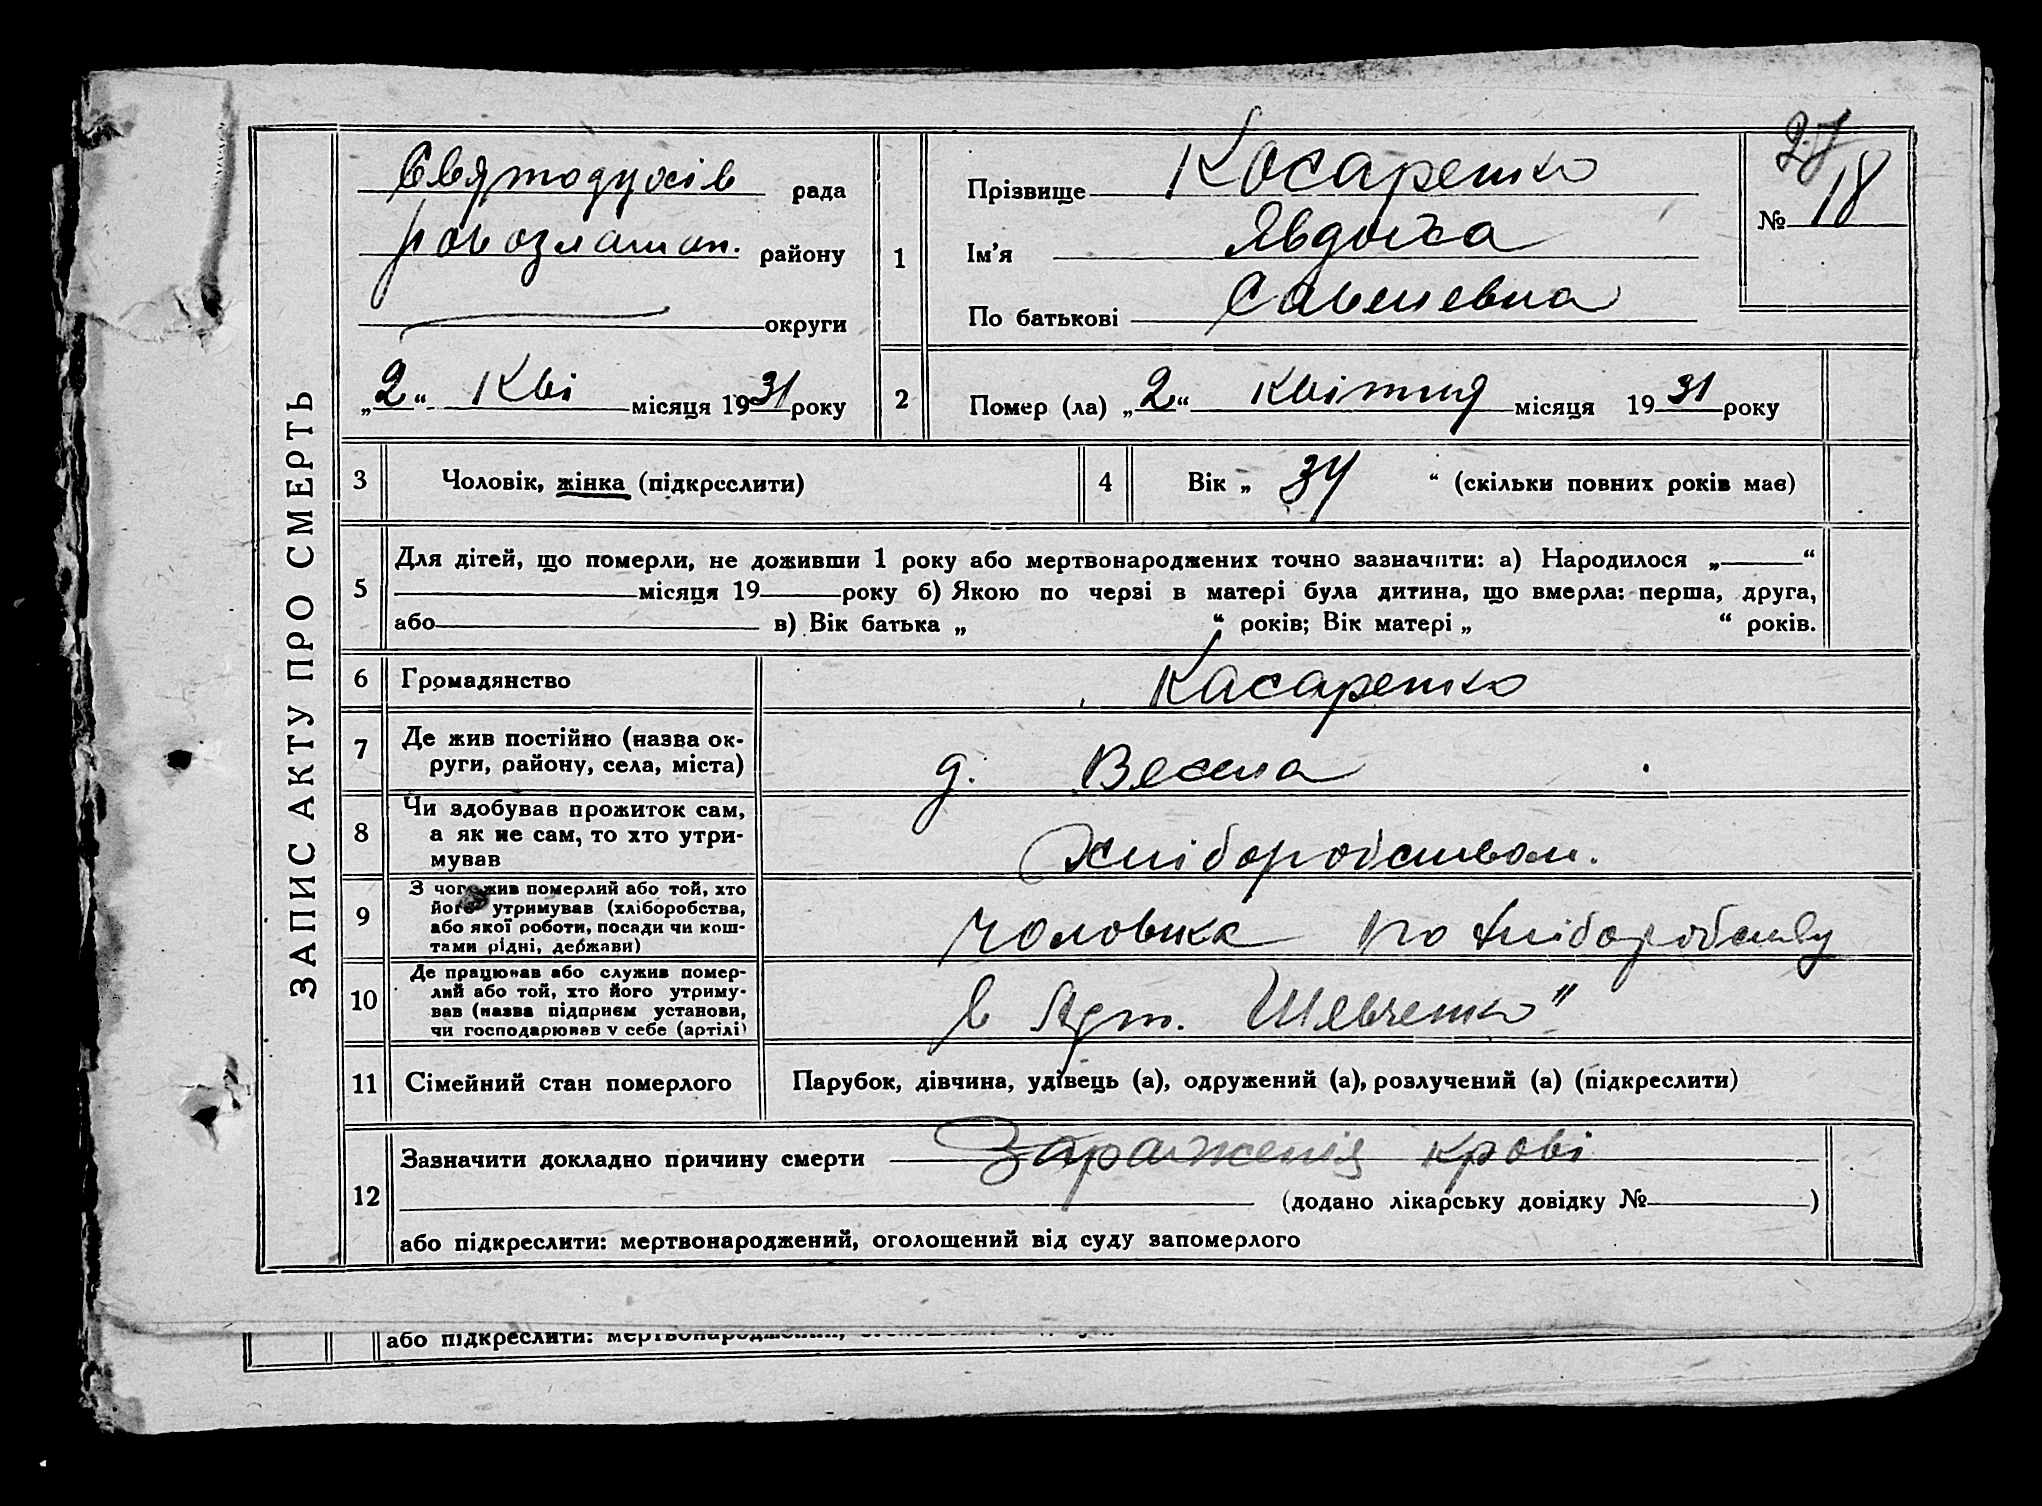 ЗАПИС АКТУ ПРО СМЕРТЬ
Святодухів рада
району
округи
„2“ Кві місяця 1931 року
1
Прізвище Косаренко
Ім'я Явдоха
По батькові Савелевна
27
№ 18
2
Помер (ла) „2“ Квітня місяця 1931 року
3
Чоловік, жінка (підкреслити)
4
Вік „34“ (скільки повних років має)
5
Для дітей, що померли, не доживши 1 року або мертвонароджених точно зазначити: а) Народилося „ “
місяця 19 року б) Якою по черзі в матері була дитина, що вмерла: перша, друга,
або в) Вік батька „ “ років; Вік матері „ “ років.
6
Громадянство
Касаренко
7
Де жив постійно (назва ок-
руги, району, села, міста)
д. Весела
8
Чи здобував прожиток сам,
а як не сам, то хто утри-
мував
Хліборобством.
9
З чого жив померлий або той, хто
його утримував (хліборобства,
або якої роботи, посади чи кош-
тами рідні, держави)
Чоловика по хліборобству
10
Де працював або служив помер-
лий або той, хто його утриму-
вав (назва підприєм установи,
чи господарював у себе (артілі)
в Арт. Шевченко"
11
Сімейний стан померлого
Парубок, дівчина, удівець (а), одружений (а), розлучений (а) (підкреслити)
12
Зазначити докладно причину смерти Зараженія крові
(додано лікарську довідку № )
або підкреслити: мертвонароджений, оголошений від суду запомерлого
або підкреслити: мертвонароджений,